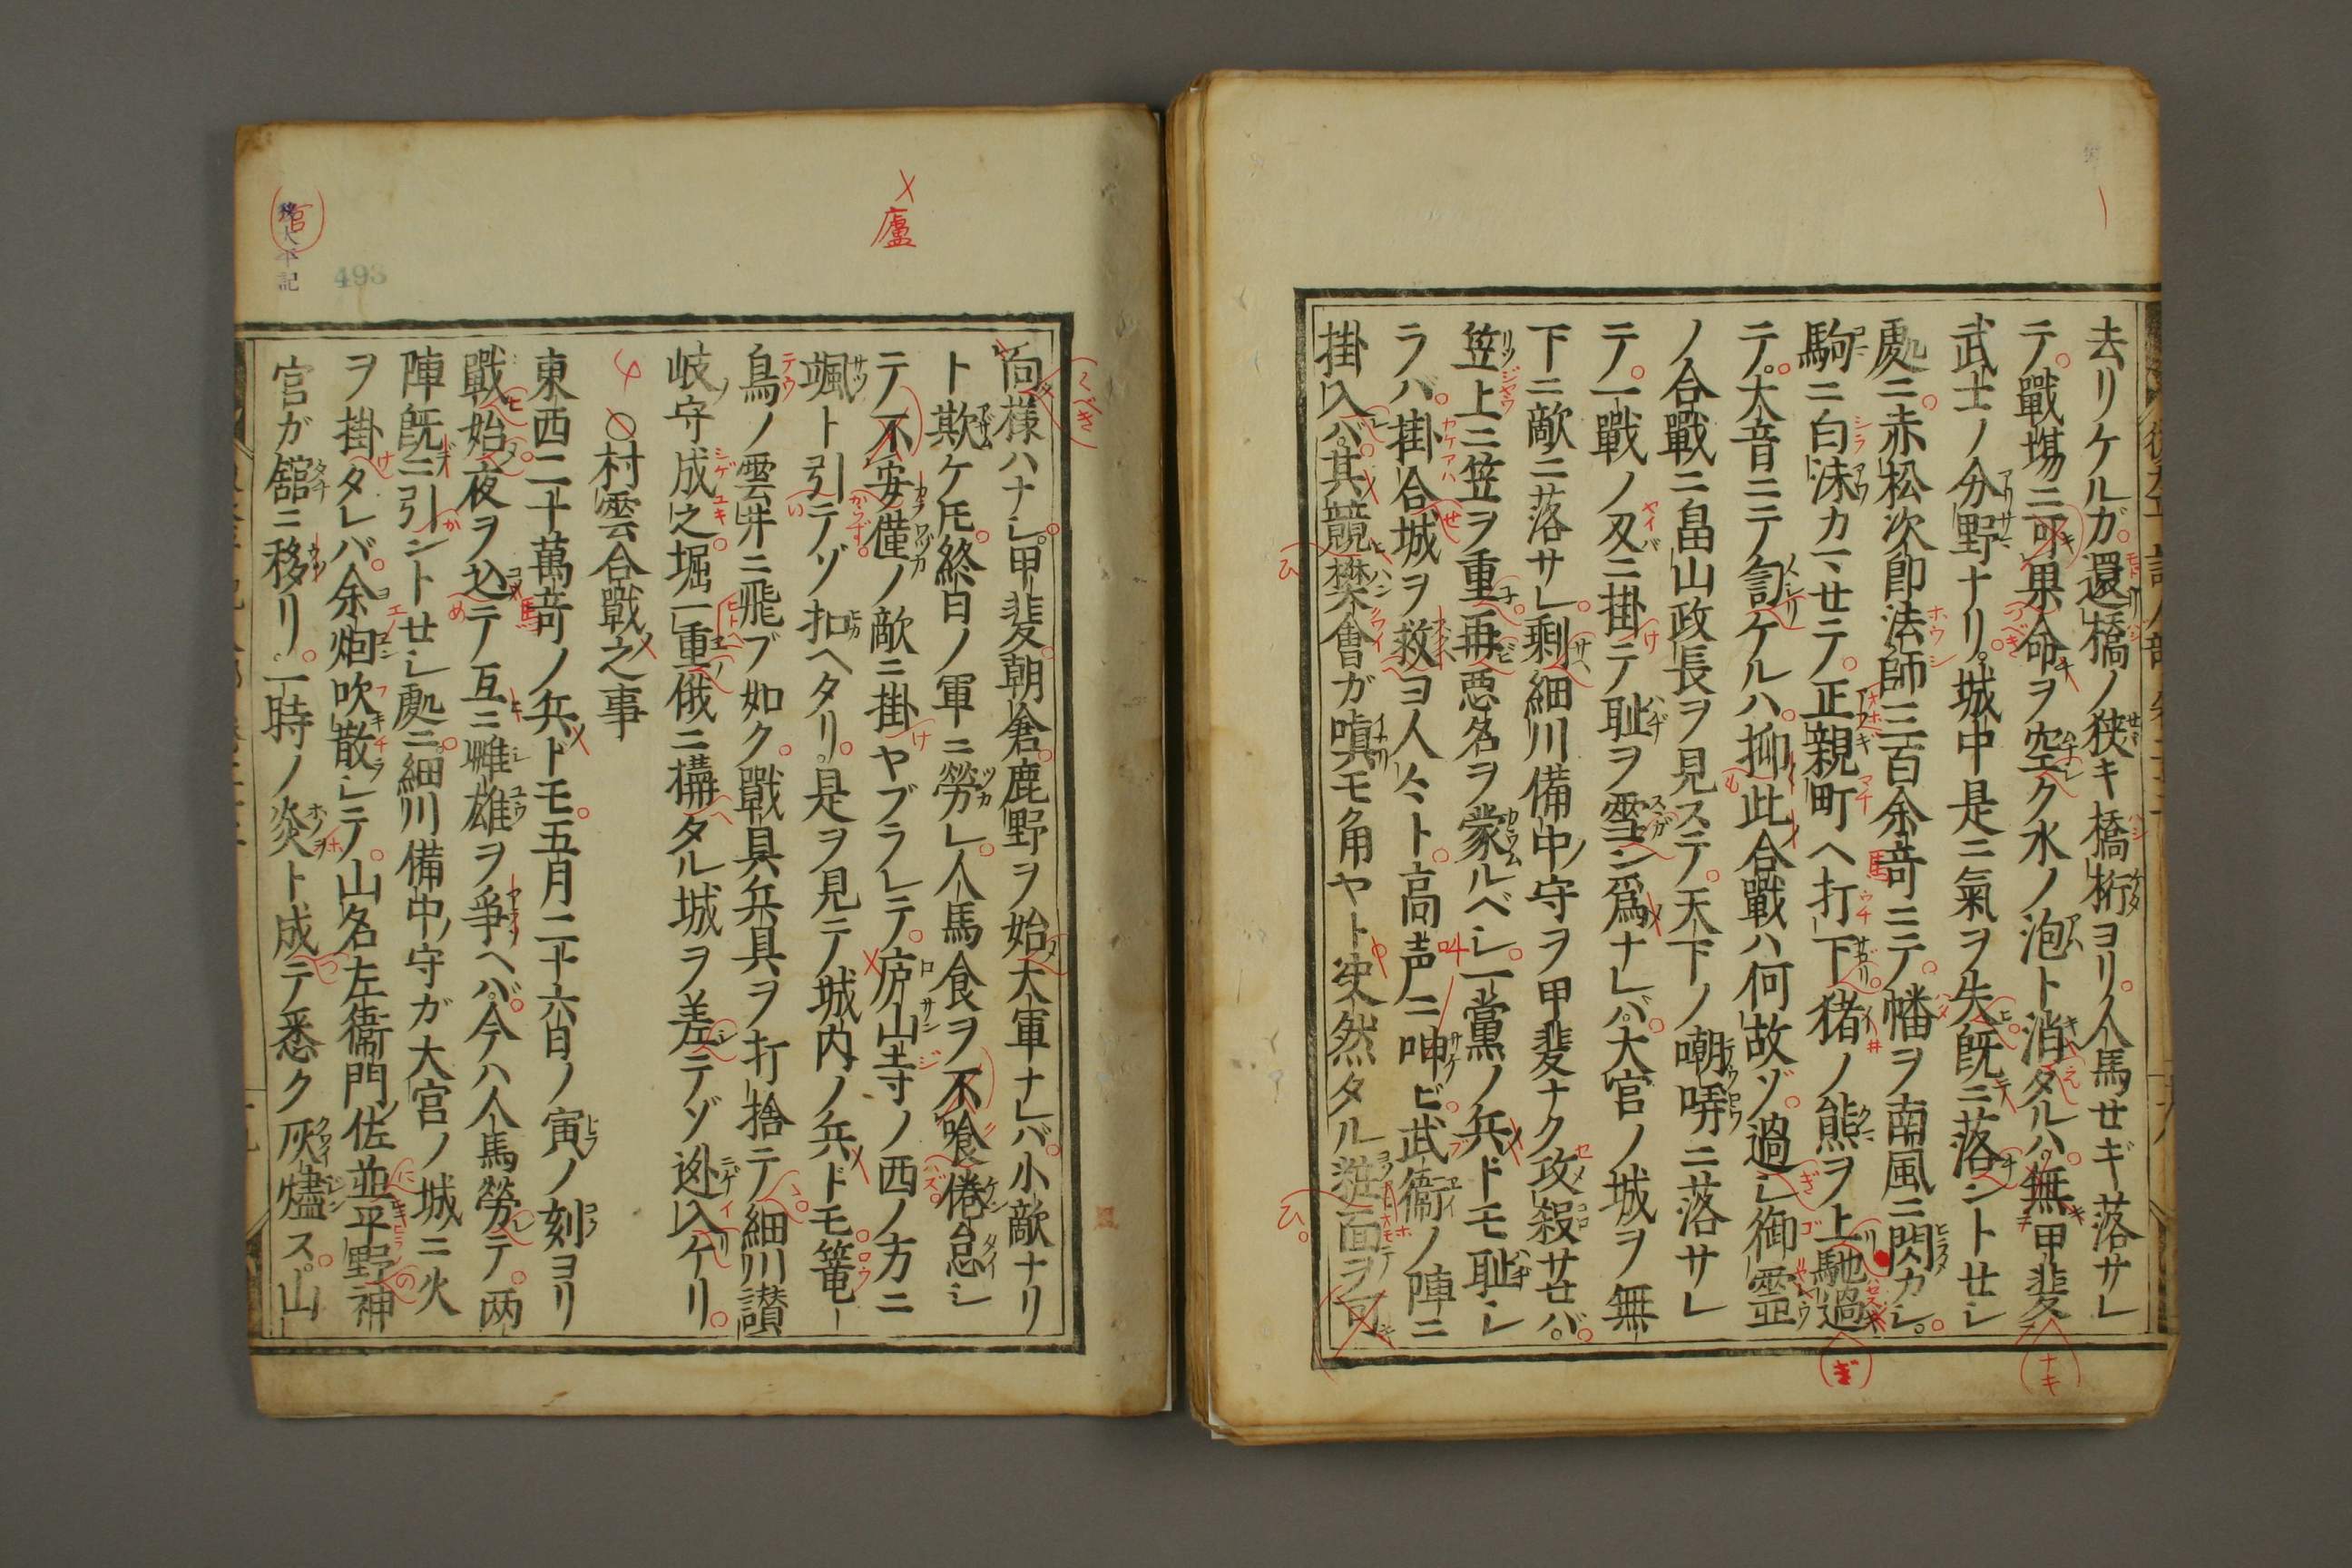 去リケルガ還橋ノ狭キ橋桁ヨリ人馬せギ落サレ
テ戰塲ニ可果命ヲ空ク水ノ泡ト消タルハ無甲斐
武士ノ分野ナリ城中是ニ氣ヲ失既ニ落ントせシ
處ニ赤松次郎法師三百余竒ニテ幡ヲ南風ニ閃カシ
駒ニ白沫カマせテ正親町ヘ打下猪ノ熊ヲ上馳過
テ大音ニテ訇ケルハ抑此合戰ハ何故ゾ過シ御霊
ノ合戰ニ畠山政長ヲ見ステ天下ノ嘲哢ニ落サレ
テ一戰ノ刄ニ掛テ耻ヲ雪ン爲ナレバ大官ノ城ヲ無
下ニ敵ニ落サレ剰細川備中守ヲ甲斐ナク攻殺サせバ
笠上ニ笠ヲ重再悪名ヲ蒙ルベシ一黨ノ兵ドモ耻シ
ラバ掛合城ヲ救ヨ人々ト高声ニ呻ビ武衞ノ陣ニ
掛入バ其競樊噲ガ嗔モ角ヤト突然タル粧面ヲ可
向様ハナシ甲斐朝倉鹿野ヲ始大軍ナレバ小敵ナリ
ト欺ケ𪜈終日ノ軍ニ勞レ人馬食ヲ不喰倦怠シ
テ不安僅ノ敵ニ掛ヤブラレテ庐山寺ノ西ノ方ニ
颯ト引テゾ扣ヘタリ是ヲ見テ城内ノ兵ドモ篭
鳥ノ雲井ニ飛ブ如ク戰具兵具ヲ打捨テ細川讃
岐守成之堀一重俄ニ構タル城ヲ差テゾ迯入ケリ
○村雲合戰之事
東西二十萬竒ノ兵ドモ五月二十六日ノ寅ノ刻ヨリ
戰始夜ヲ込テ互ニ雌雄ヲ爭ヘバ今ハ人馬勞テ两
陣既ニ引ントせシ處ニ細川備中守ガ大宮ノ城ニ火
ヲ掛タレバ余烟吹散シテ山名左衞門佐並平野神
官ガ舘ニ移リ一時ノ炎ト成テ悉ク灰燼ス山
廬
官
太平記
493